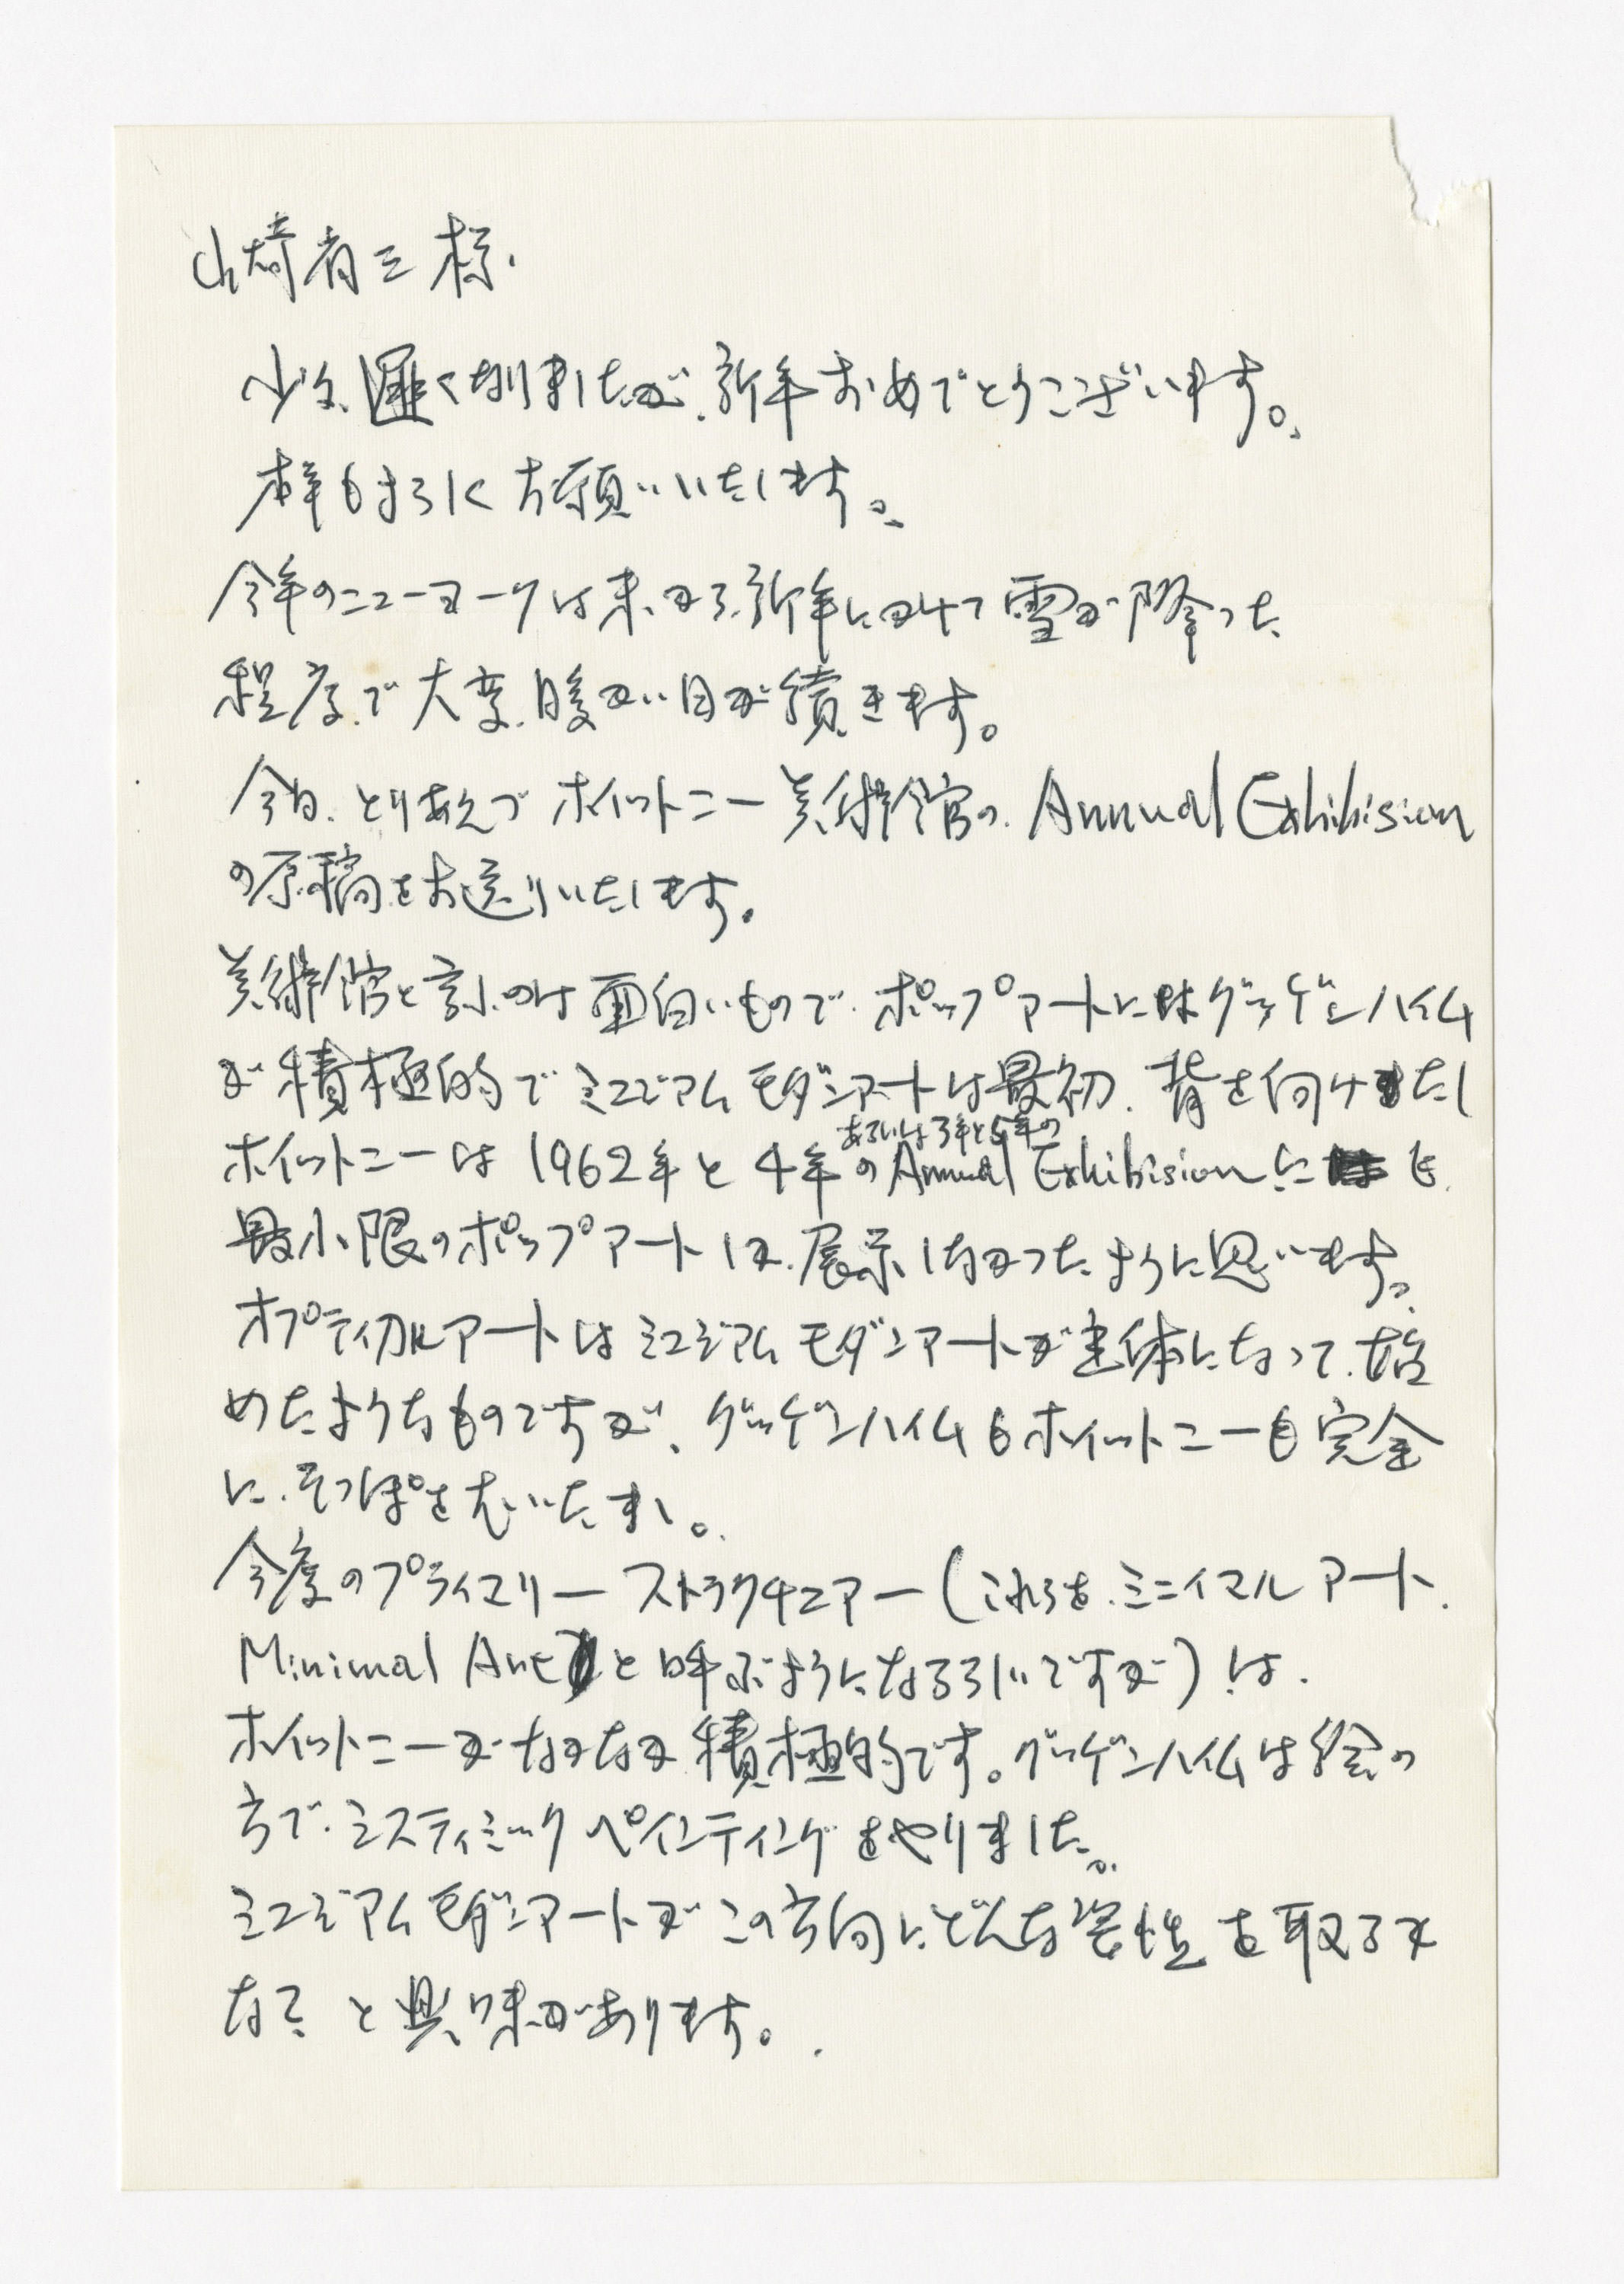 山崎省三様.
少々遅くなりましたが、新年おめでとうございます。
本年もよろしくお願いいたします。
今年のニューヨークは末から新年にかけて雪が降った
程度で大変暖かい日が続きます。
今日、とりあえづホイットニー美術館の Annual Exhibision
の原稿をお送りいたします。
美術館と言ふのは面白いもので、ポップアートにはグッゲンハイム
が積極的でミュジアムモダンアートは最初、背を向けましたし
あるいは3年と5年の
ホイットニーは1962年と4年の Annual Exhibision にも
最小限のポップアートしか、展示しなかったように思います。
オプティカルアートはミュジアムモダンアートが主体になって、始
めたようなものですが、グッゲンハイムもホイットニーも完全
に、そっぽをむいたまし。
今度のプライマリーストラクチュアー(これらを、ミニイマルアート
Minimal Art と呼ぶようになるらしいですが)は、
ホイットニーがなかなか積極的です。グッゲンハイムは絵の
方で、ミスティミックペインティングをやりました。
ミュジアムモダンアートがこの方向にどんな姿性を取るか
なと、と興味があります。